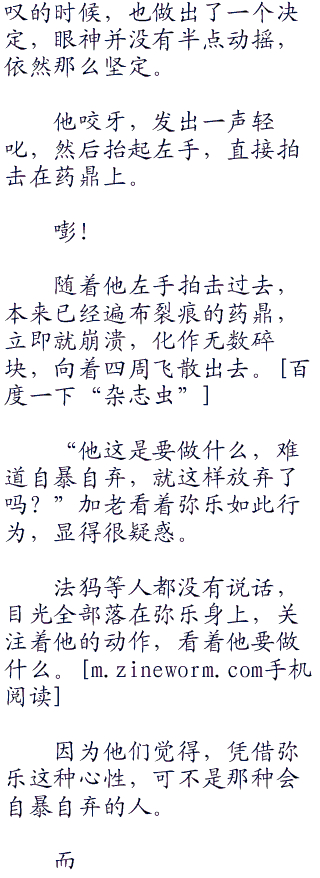 叹的时候，也做出了一个决
定，眼神并没有半点动摇，
依然那么坚定。
他咬牙，发出一声轻
叱，然后抬起左手，直接拍
击在药鼎上。
嘭！
随着他左手拍击过去，
本来已经遍布裂痕的药鼎，
立即就崩溃，化作无数碎
块，向着四周飞散出去。[百
度一下“杂志虫”]
“他这是要做什么，难
道自暴自弃，就这样放弃了
吗？”加老看着弥乐如此行
为，显得很疑惑。
法犸等人都没有说话，
目光全部落在弥乐身上，关
注着他的动作，看着他要做
什么。[m.zineworm.com手机
阅读]
因为他们觉得，凭借弥
乐这种心性，可不是那种会
自暴自弃的人。
而